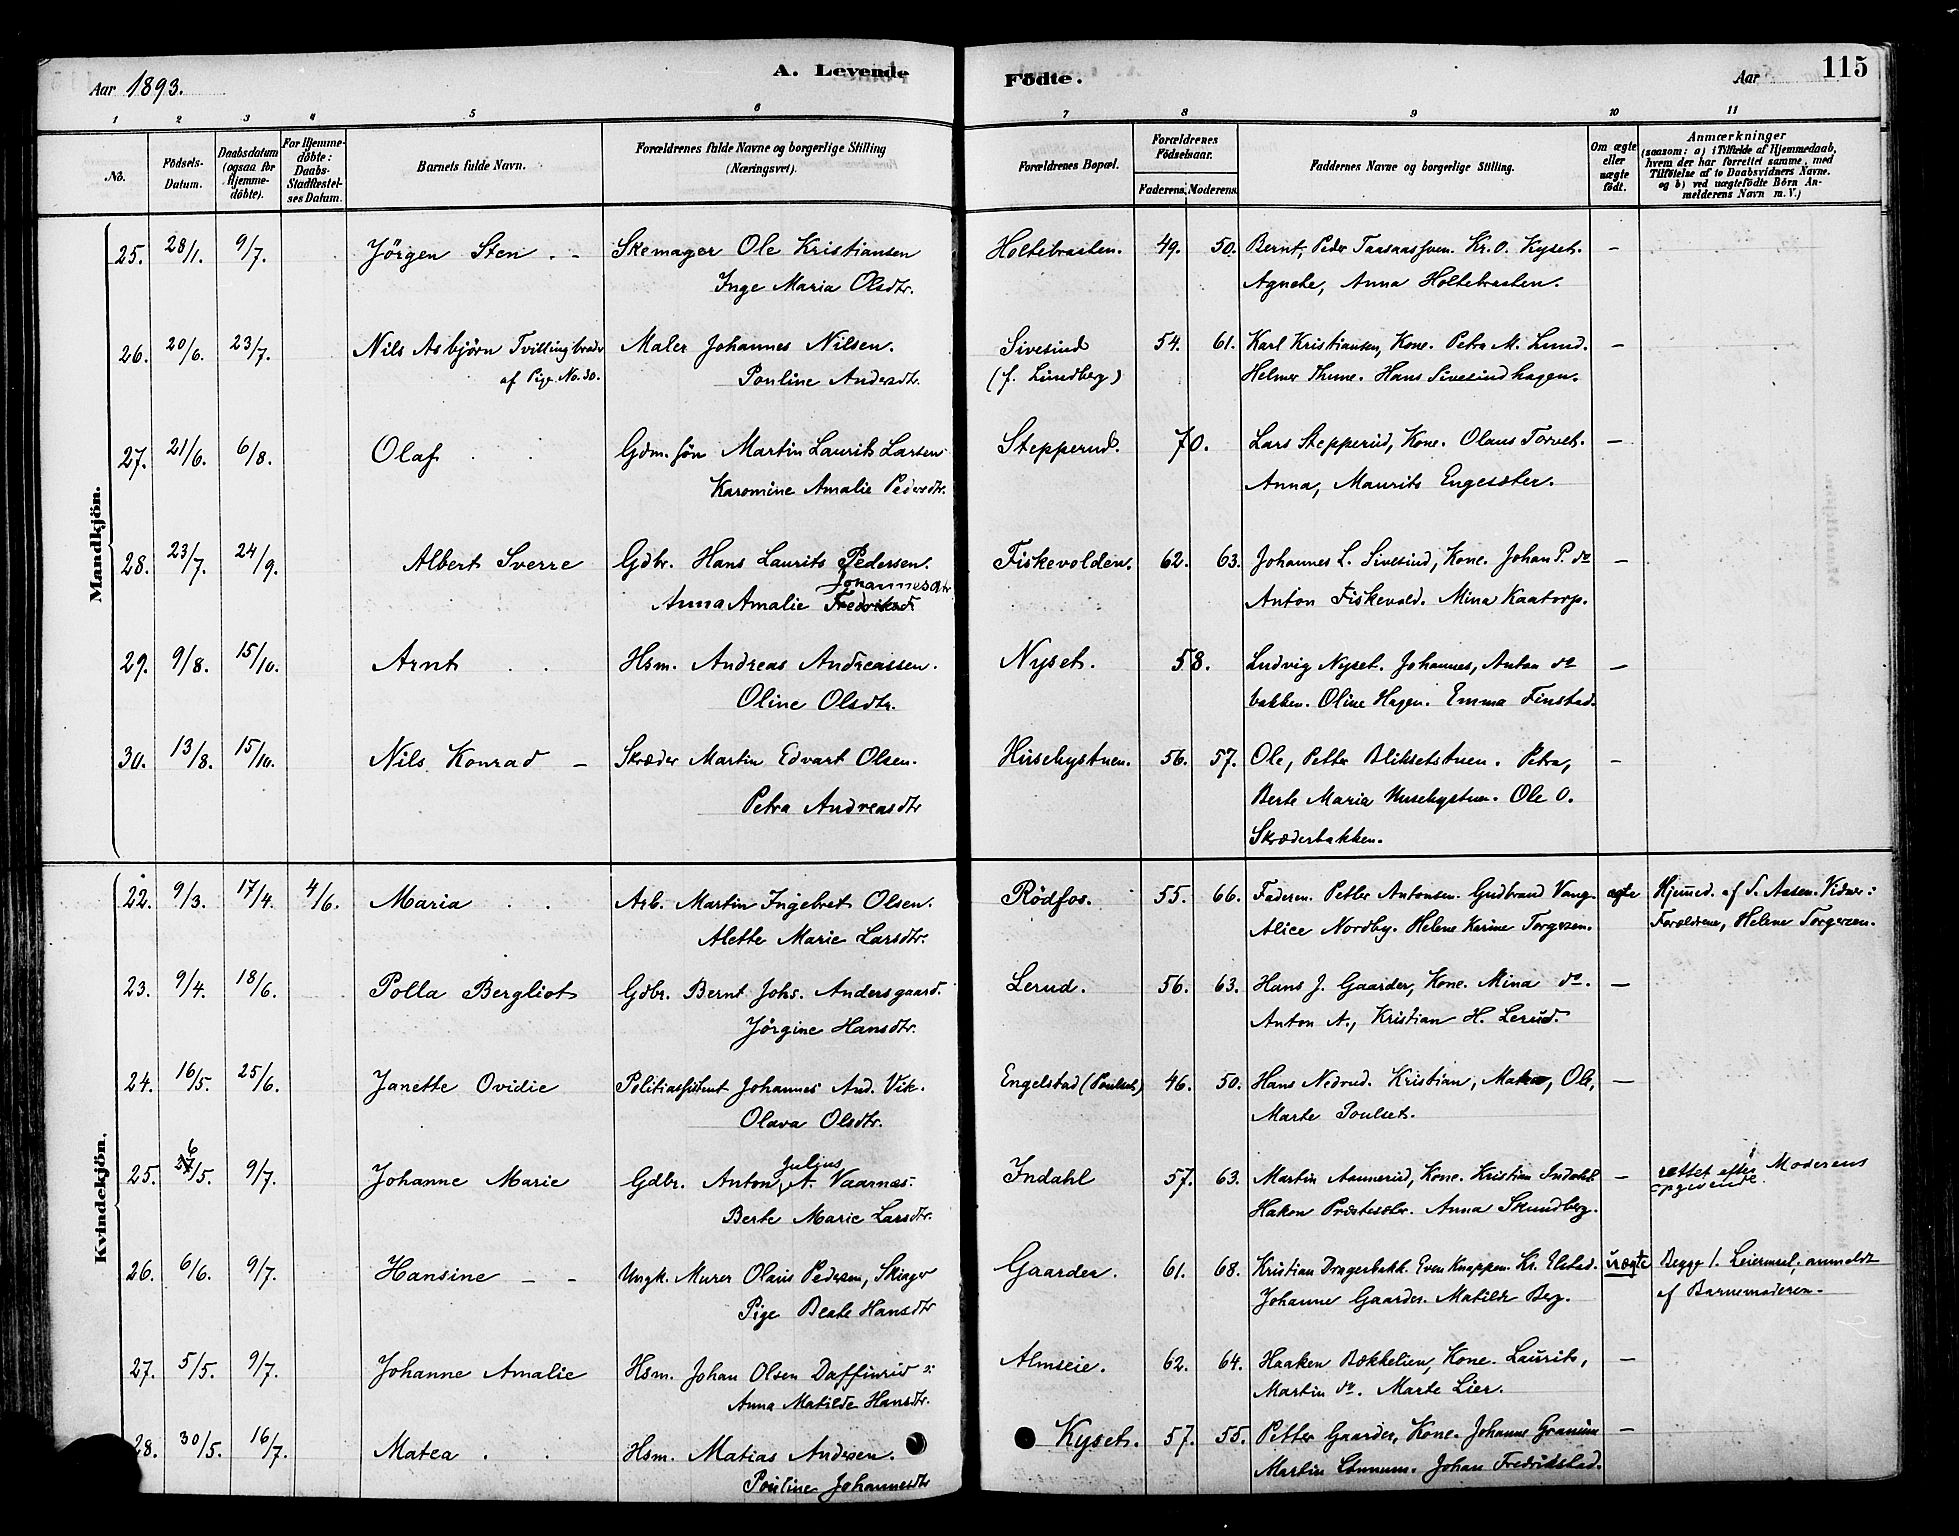 Aar 1893.
A. Levende
Födte.
Aar
115
1 2 3 4 5 6 7 8 9 10 11
No.
Födsels-Datum.
Daabsdatum (ogsaa for Hjemme-döbte).
For Hjemme-döbte: Daabs-Stadfæstel-ses Datum.
Barnets fulde Navn.
Forældrenes fulde Navne og borgerlige Stilling (Næringsvei).
Forældrenes Bopæl.
Forældrenes Födselsaar.
Faderens. Moderens.
Faddernes Navne og borgerlige Stilling.
Om ægte eller uægte födt.
Anmærkninger
(saasom: a) i Tilfælde af Hjemmedaab, hvem der har forrettet samme, med Tilföielse af to Daabsvidners Navne. og b) ved uægtefödte Börn An-melderens Navn m. V.)
Mandkjön.
25. 28/1. 9/7. Jörgen Sten - Skomager Ole Kristiansen Holtebraaten. 49. 50. Bernt, Peder Taasaasven. Kr. O. Kyset. -
Inge Maria Olsdtr. Agnete, Anna Holtebraaten.
26. 20/6. 23/7. Nils Asbjörn Tvillingbroder Maler Johannes Nilsen. Sivesind 54. 61. Karl Kristiansen, Kone. Petra M. Lund. -
af Pige No. 30. Pouline Andersdtr. (f. Lundberg) Helmer Thune. Hans Sivesindhagen.
27. 21/6. 6/8. Olaf Gdm. sön Martin Laurits Larsen Stepperud. 70. Lars Stepperud, Kone. Olaus Torvet. -
Karomine Amalie Pedersdtr. Anna, Maurits Engesæter.
28. 23/7. 24/9. Albert Sverre Gdbr. Hans Laurits Pedersen. Fiskevolden. 62. 63. Johannes L. Sivesind, Kone. Johan P. do -
Johannesdtr
Anna Amalie Fredriksd Anton Fiskevold. Mina Kaatorp.
29. 9/8. 15/10. Arnt Hsm. Andreas Andreassen. Nyset. 58. Ludvig Nyset. Johannes, Anton do -
Oline Olsdtr. bakken. Oline Hagen. Emma Finstad.
30. 13/8. 15/10. Nils Konrad - Skræder Martin Edvart Olsen. Husebystuen. 56. 57. Ole, Petter Bliksetstuen. Petra, -
Petra Andreasdtr Berte Maria Husebystuen. Ole O.
Skræderbakken.
Kvindekjön.
22. 9/3. 17/4. 4/6. Maria Arb. Martin Ingebret Olsen. Rödfos. 55. 66. Faderen. Petter Antonsen. Gudbrand Vang. ægte Hjemmed. af S. Aasen. Vidner:
Alette Marie Larsdtr. Alice Nordby. Helene Karine Torgersen. Forældrene, Helene Torgersen.
23. 9/4. 18/6. Polla Bergliot Gdbr. Bernt Johs. Andersgaard. Lerud. 56. 63. Hans J. Gaarder, Kone. Mina do. -
Jörgine Hansdtr. Anton A., Kristian H. Lerud.
24. 16/5. 25/6. Janette Ovidie Politiassistent Johannes And. Vik. Engelstad (Poulset) 46. 50. Hans Nedrud. Kristian, Ole, -
Olava Olsdtr. Marte Poulset.
25. 26/5. 9/7. Johanne Marie Gdbr. Anton Julius A. Vaarnæs. Indahl 57. 63. Martin Aannerud, Kone. Kristian Indahl. - rettet efter Moderens opgivende.
Berte Marie Larsdtr. Hakon Præstesæter. Anna Skundberg.
26. 6/6. 9/7. Hansine - - Ungk. Murer Olaus Pedersen, Skinger Gaarder. 61. 68. Kristian Dragerbakk. Even Knappen. Kr. Elstad. uægte Begge 1. Leiermaal. anmeldt
Pige Beate Hansdtr Johanne Gaarder. Matilde Berg. af Barnemoderen.
27. 5/5. 9/7. Johanne Amalie Hsm. Johan Olsen Daffinrud Almseie. 62. 64. Haaken Bækkelien, Kone. Laurits, -
Anna Matilde Hansdtr. Martin do. Marte Lier.
28. 30/5. 16/7. Matea Hsm. Matias Andersen. Kyset. 57. 55. Petter Gaarder, Kone. Johanne Granum -
Pouline Johannesdtr Martin Lönnum. Johan Fredrikstad.